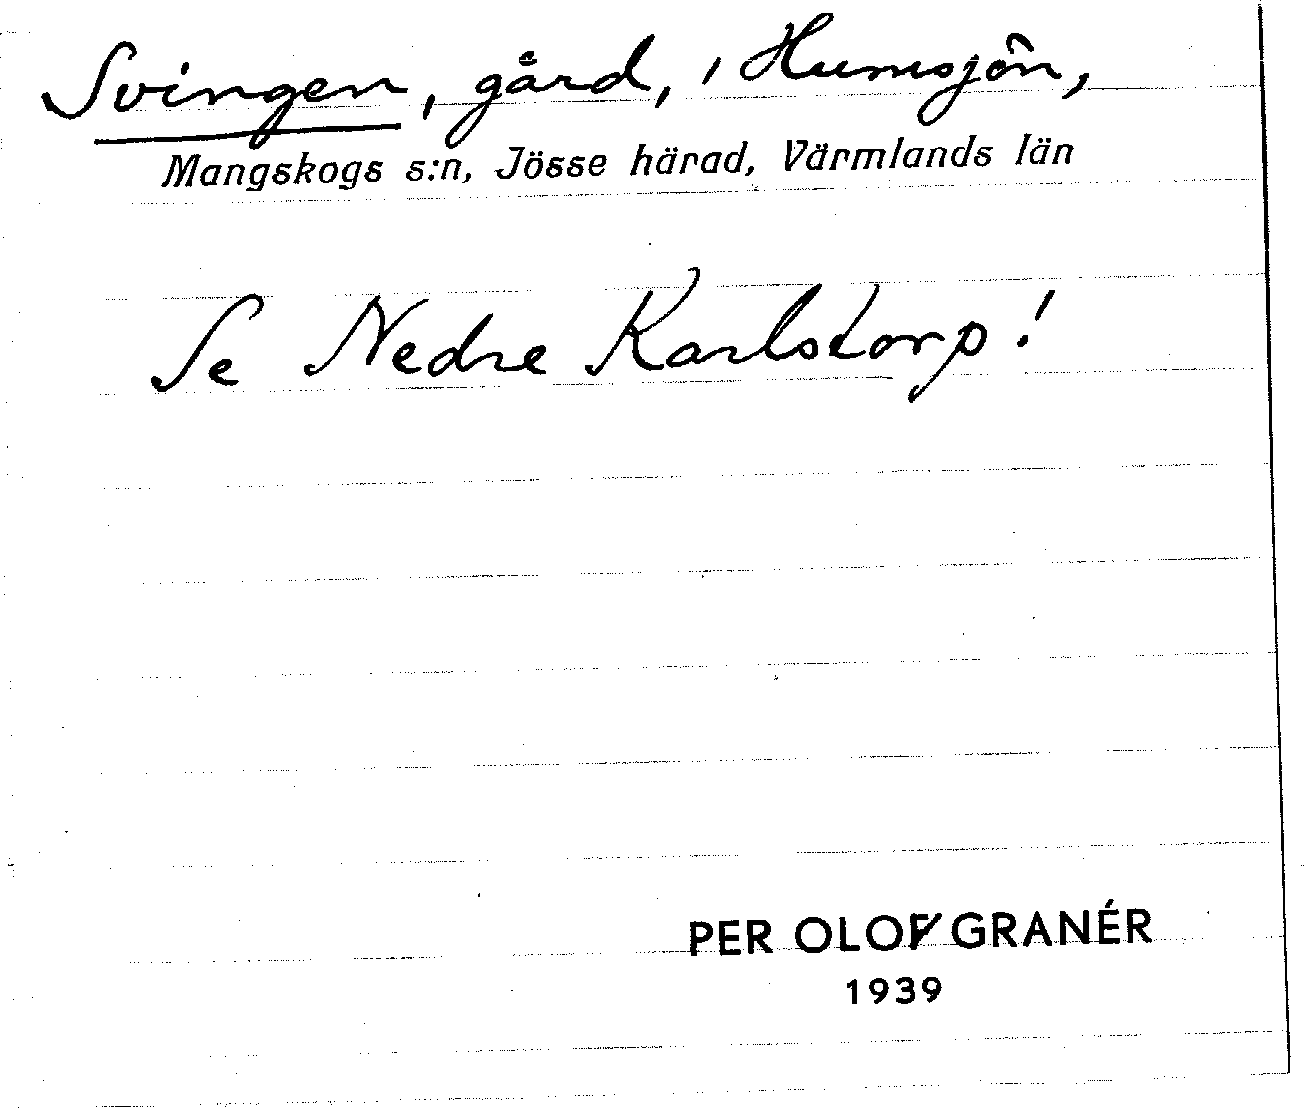 Svingen, gård, i Humsjön,
Mangskogs s:n, Jösse härad, Värmlands län
Se Nedre Karlstorp!
PER OLOF GRANÉR
1939